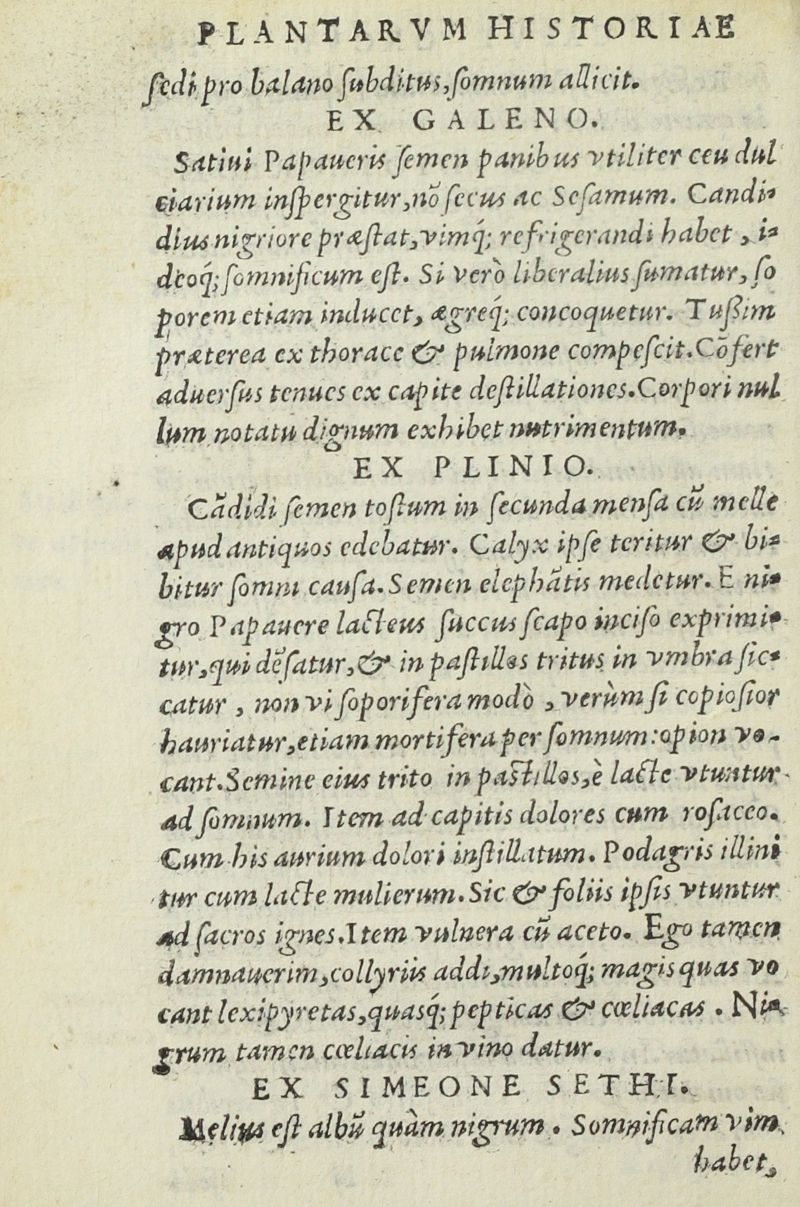 PLANTARVM HISTORIAE
ſedi pro balano ſubditus, ſomnum allicit.
EX GALENO.
Satiui Papaueris ſemen panibus vtiliter ceu dul
ciarium inſpergitur, nõ ſecus ac Seſamum. Candi-
dius nigriore præſtat, vimq́; refrigerandi habet, i-
deoq́; ſomnificum eſt. Si verò liberalius ſumatur, ſo
porem etiam inducet, ægreq́; concoquetur. Tußim
præterea ex thorace & pulmone compeſcit. Cõfert
aduerſus tenues ex capite deſtillationes. Corpori nul
lum notatu dignum exhibet nutrimentum.
EX PLINIO.
Cãdidi ſemen toſtum in ſecunda menſa cũ melle
apud antiquos edebatur. Calyx ipſe teritur & bi-
bitur ſomni cauſa. Semen elephãtis medetur. E ni-
gro Papauere lacteus ſuccus ſcapo inciſo exprimi-
tur, qui dẽſatur, & in paſtillos tritus in vmbra ſic-
catur, non vi ſoporifera modò, verùm ſi copioſior
hauriatur, etiam mortifera per ſomnum: opion vo-
cant. Semine eius trito in paſtillos, è lacte vtuntur
ad ſomnum. Item ad capitis dolores cum roſaceo.
Cum his aurium dolori inſtillatum. Podagris illini
tur cum lacte mulierum. Sic & foliis ipſis vtuntur
ad ſacros ignes. Item vulnera cũ aceto. Ego tamen
damnauerim, collyriis addi, multoq́; magis quas vo
cant lexipyretas, quasq́; pepticas & cœliacas. Ni-
grum tamen cœliacis in vino datur.
EX SIMEONE SETHI.
Melius eſt albũ quàm nigrum. Somnificam vim
habet,